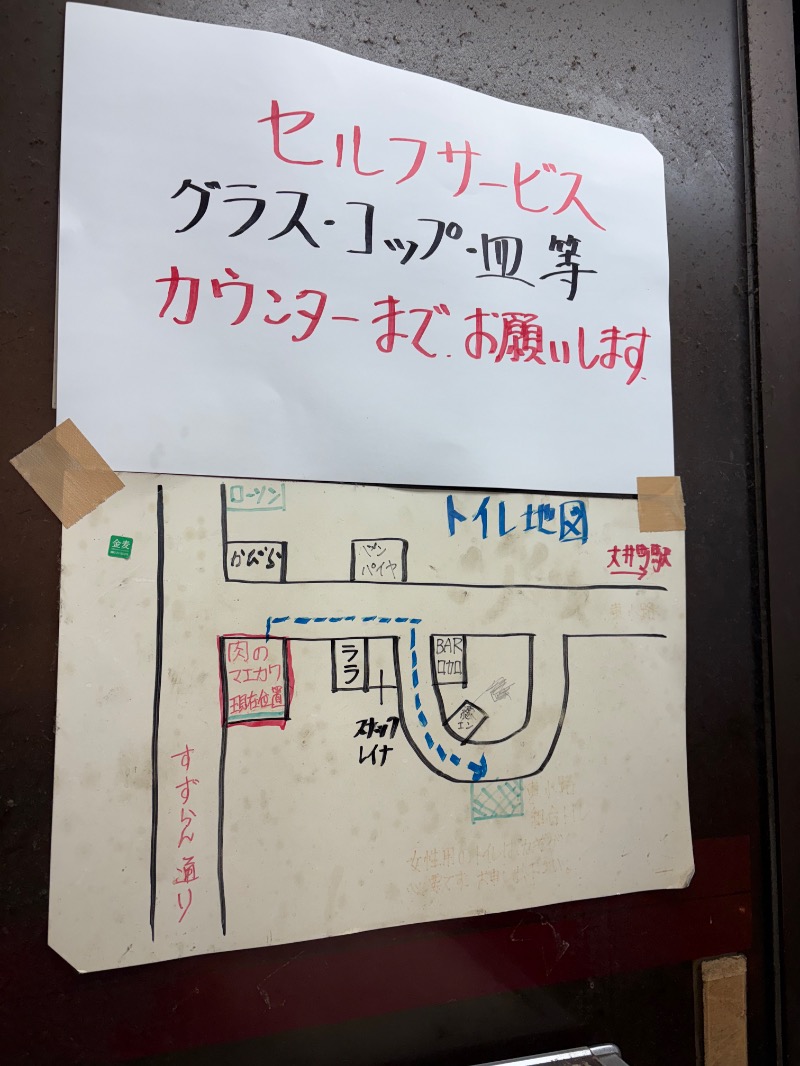 セルフサービス
グラス・コップ・皿 等
カウンターまで、お願いします。
ローソン
トイレ地図
金麦
かびら
バンパイヤ
大井町駅
肉の
マエカワ
現在位置
ララ
BAR
ロカロ
スナック
レイナ
エン
すずらん通り
女性用